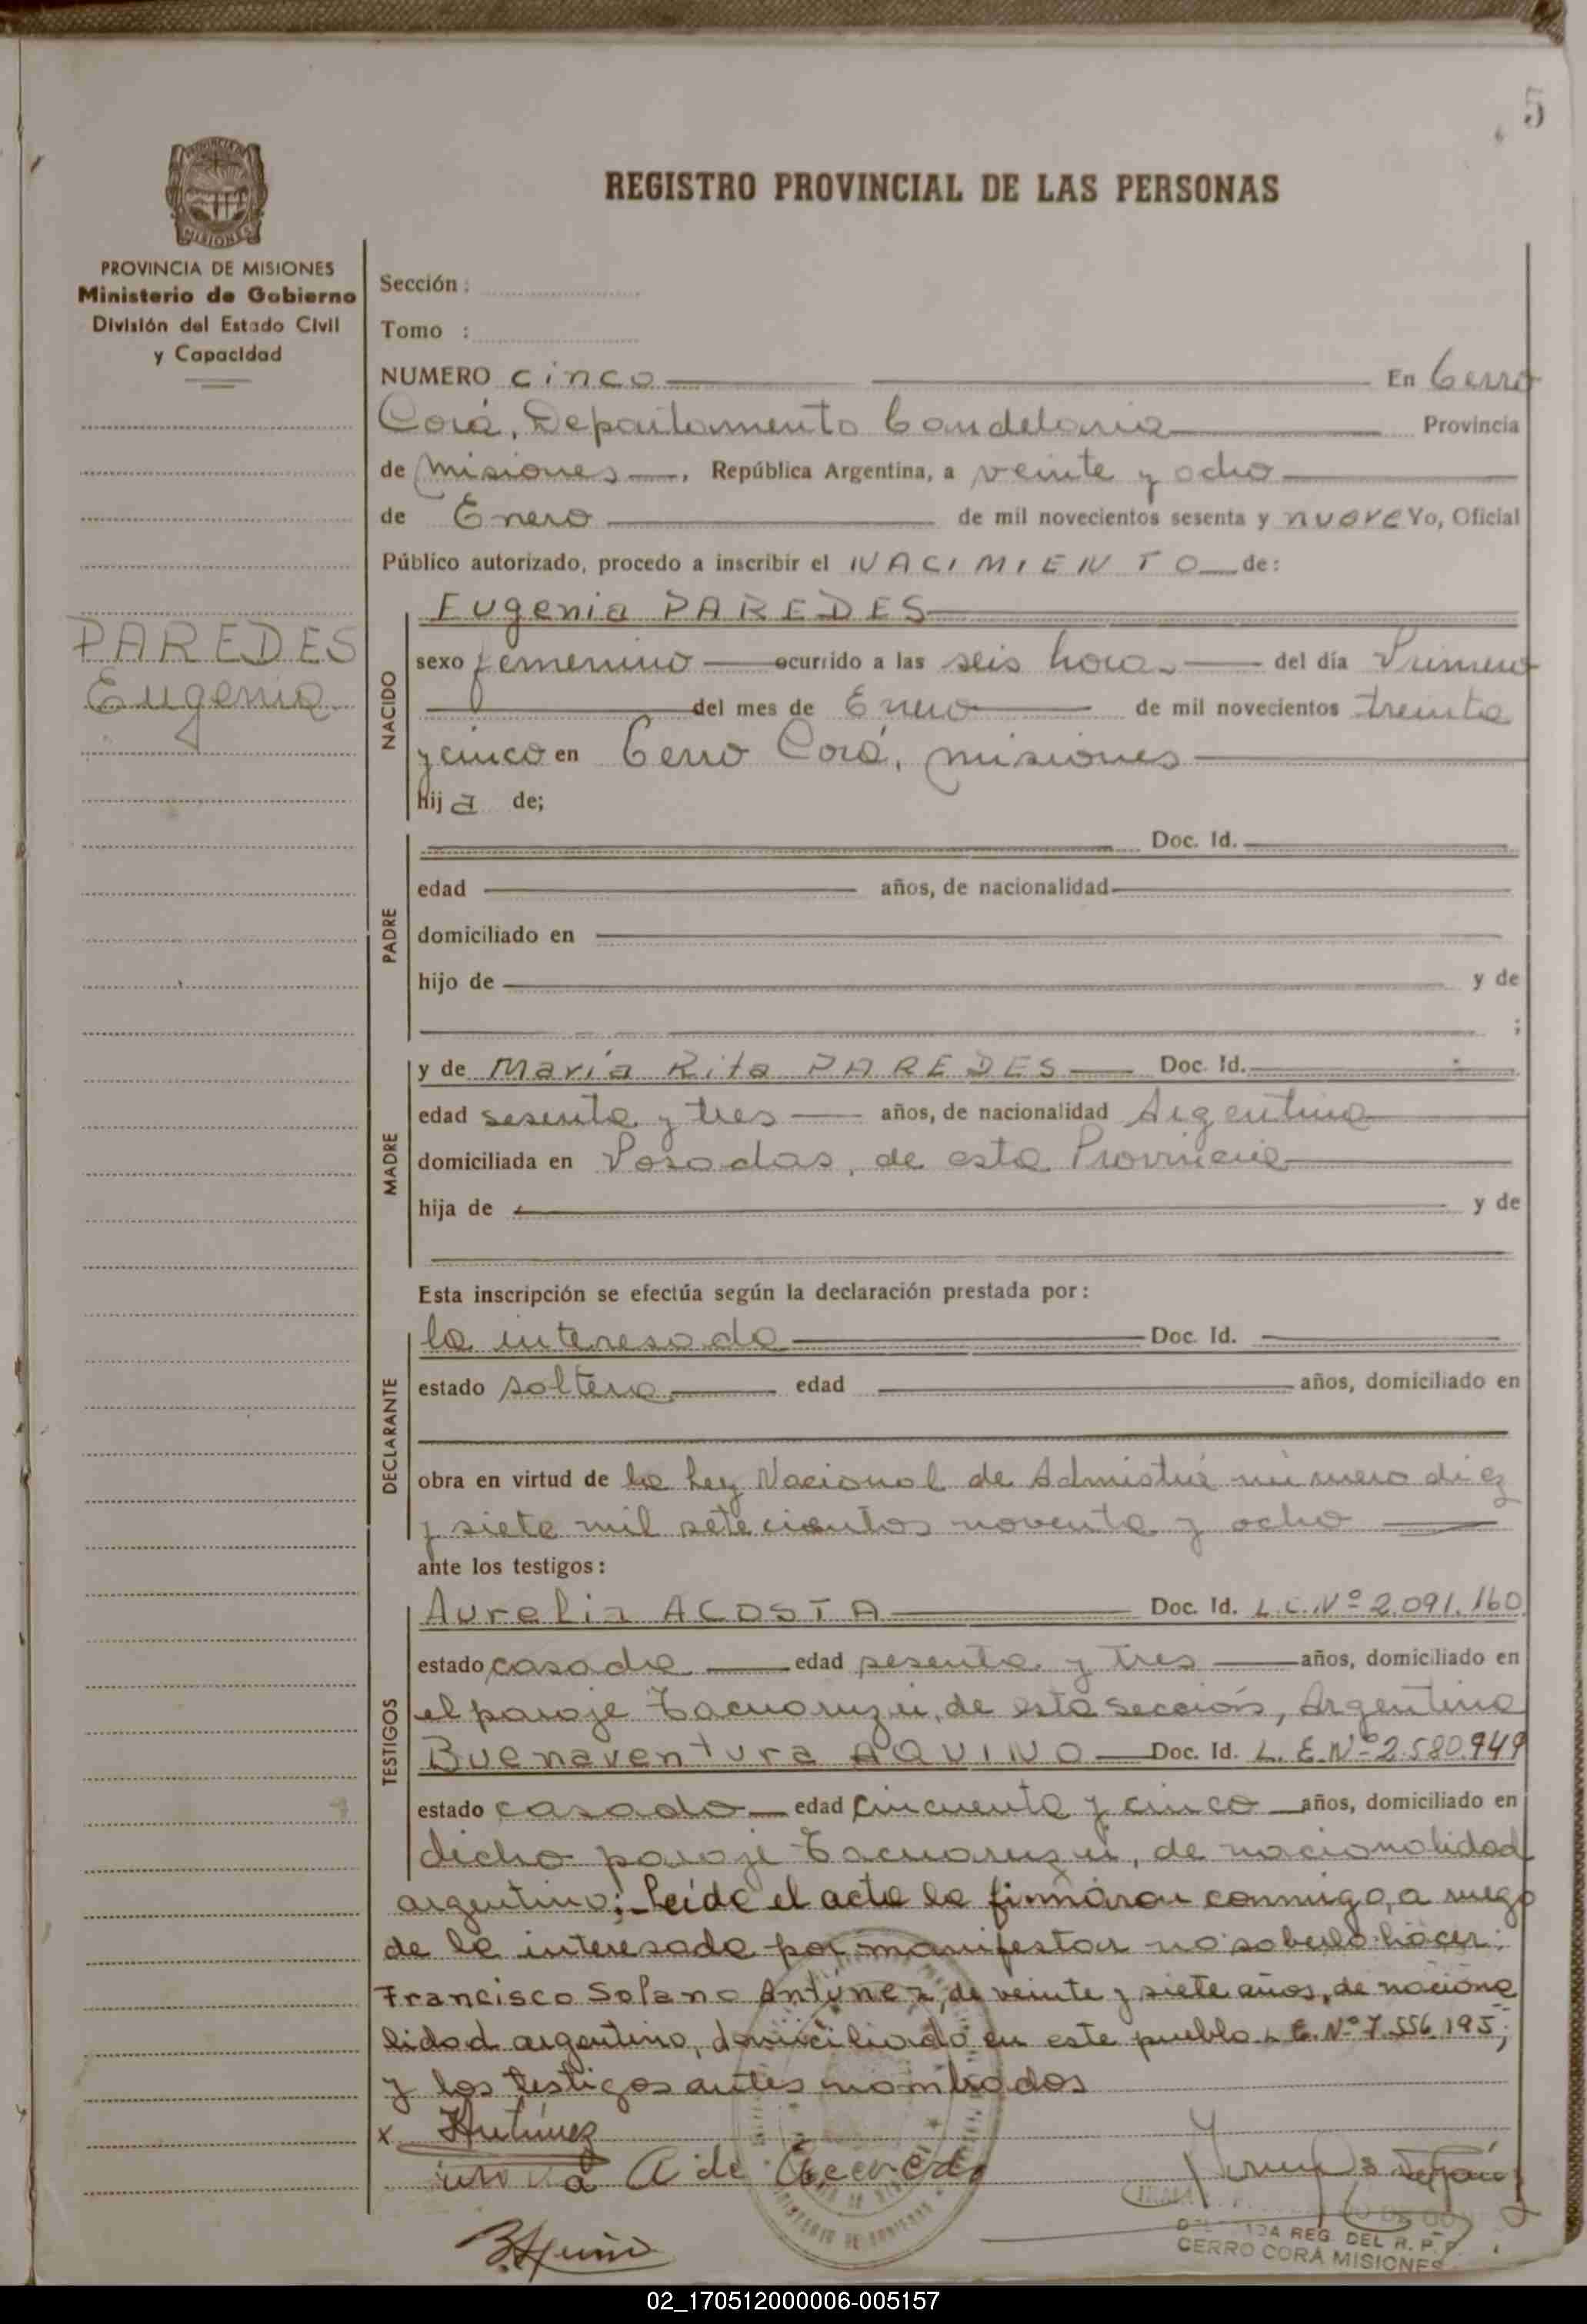 5
REGISTRO PROVINCIAL DE LAS PERSONAS
MISIONES
PROVINCIA DE MISIONES
Ministerio de Gobierno
División del Estado Civil
y Capacidad
PAREDES
Eugenia
Sección:
Tomo :
NUMERO cinco En Cerro
Corá, Departamento Candelaria Provincia
de Misiones, República Argentina, a veinte y ocho
de Enero de mil novecientos sesenta y nueve Yo, Oficial
Público autorizado, procedo a inscribir el NACIMIENTO de:
NACIDO
Eugenia PAREDES
sexo femenino ocurrido a las seis horas del día Primero
del mes de Enero de mil novecientos treinta
y cinco en Cerro Corá, misiones
hija de;
PADRE
Doc. Id.
edad años, de nacionalidad
domiciliado en
hijo de y de
;
MADRE
y de María Rita PAREDES Doc. Id.
edad sesenta y tres años, de nacionalidad Argentina
domiciliada en Posadas, de esta Provincia
hija de y de
Esta inscripción se efectúa según la declaración prestada por:
DECLARANTE
la interesada Doc. Id.
estado soltera edad años, domiciliado en
obra en virtud de la Ley Nacional de Admistía número diez
y siete mil setecientos noventa y ocho
ante los testigos:
TESTIGOS
Aurelia ACOSTA Doc. Id. L.C. Nº 2.091.160
estado casada edad sesenta y tres años, domiciliado en
el paraje Tacuaruzú, de esta sección, Argentina
Buenaventura AQUINO Doc. Id. L.E. Nº 2.580.949
estado casado edad cincuenta y cinco años, domiciliado en
dicho paraje Tacuaruzú, de nacionalidad
argentino; Leída el acta la firmaron conmigo, a ruego
de la interesada por manifestar no saberlo hacer;
Francisco Solano Antúnez, de veinte y siete años, de naciona
lidad argentina, domiciliado en este pueblo L.E. Nº 7.556.195;
y los testigos antes nombrados
x Antúnez
A de
REG. DEL R. P. P.
CERRO CORA MISIONES
02_170512000006-005157